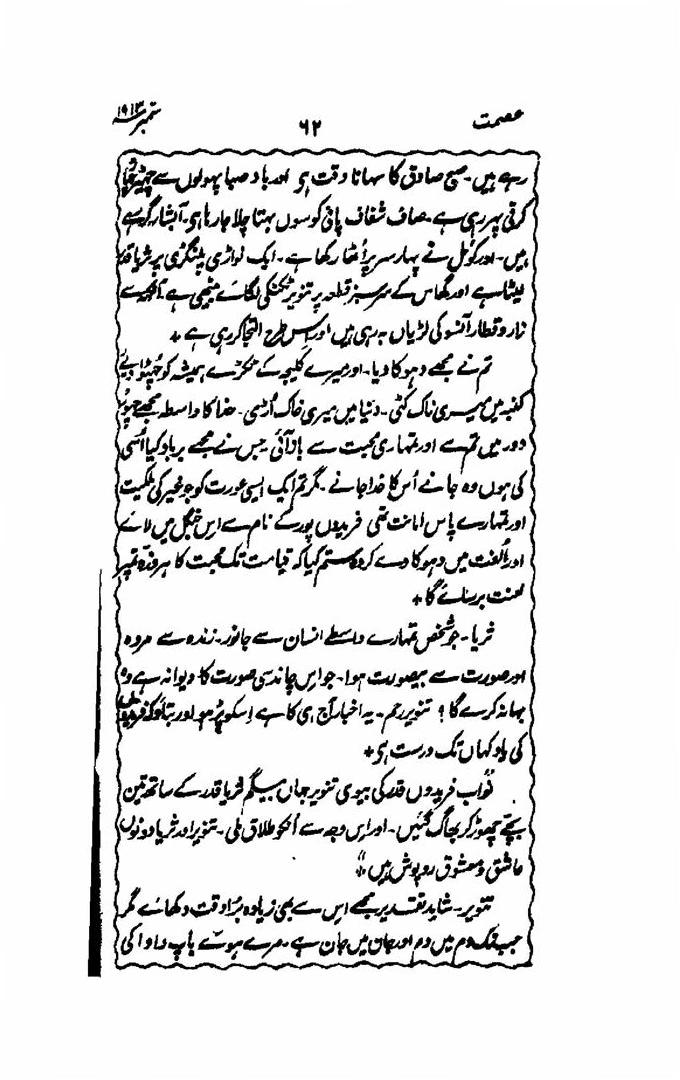 عصمت
۶۲
ستمبر ۱۹۱۳ء
رہے ہیں۔ صبح صادق کا سہانا وقت ہی اور باد صبا پھولوں سے چھیڑ چھاڑ
کرتی پھر رہی ہے۔ صاف شفاف پانی کوسوں بہتا چلا جا رہا ہی۔ آبشار گر رہے
ہیں۔ اور کوئل نے پہار سر پر اُٹھا رکھا ہے۔ ایک نواڑی پلنگڑی پر ثریا قدر
لیٹا ہے اور گھاس کے سرسبز قطعہ پر تنویر ٹکٹکی لگائے بیٹھی ہے۔ آنکھ سے
زار و قطار آنسو کی لڑیاں بہ رہی ہیں اور اس طرح التجا کر رہی ہے +
تم نے مجھے دہوکا دیا۔ اور میرے کلیجہ کے ٹکڑے ہمیشہ کو چھڑوا دیئے
کنبہ میں میری ناک کٹی۔ دنیا میں میری خاک اُڑی۔ خدا کا واسطہ مجھے چھوڑ
دو۔ میں تم سے اور تمہاری محبت سے باز آئی جس نے مجھے برباد کیا اُسی
کی ہوں وہ جانے اُس کا خدا جانے۔ مگر تم ایک ایسی عورت کو جو غیر کی ملکیت
اور تمہارے پاس امانت تھی فریدوں پور کے نام سے اس جنگل میں لائے
اور الفت میں دہوکا دے کر وہ ستم کیا کہ قیامت تک محبت کا ہر فدہ تمپر
لعنت برسائے گا +
ثریا۔ جو شخص تمہارے واسطے انسان سے جانور۔ زندہ سے مردہ
اور صورت سے بیصورت ہوا۔ جو اس چاندسی صورت کا دیوانہ ہے وہ
بہانہ کرے گا ؟ تنویر رحم۔ یہ اخبار آج ہی کا ہے اسکو پڑھو اور بتاؤ کہ فریدوں
کی یاد کہاں تک درست ہی +
"نواب فریدوں قدر کی بیوی تنویر جہاں بیگم ثریا قدر کے ساتھ تین
بچے چھوڑ کر بھاگ گئیں۔ اور اس وجہ سے اُنکو طلاق ملی۔ تنویر اور ثریا دونوں
عاشق و معشوق روپوش ہیں"+
تنویر۔ شاید تقدیر مجھے اس سے بھی زیادہ بُرا وقت دکھائے مگر
جب تک دم میں دم اور جان میں جان ہے۔ مرے ہوئے باپ دادا کی